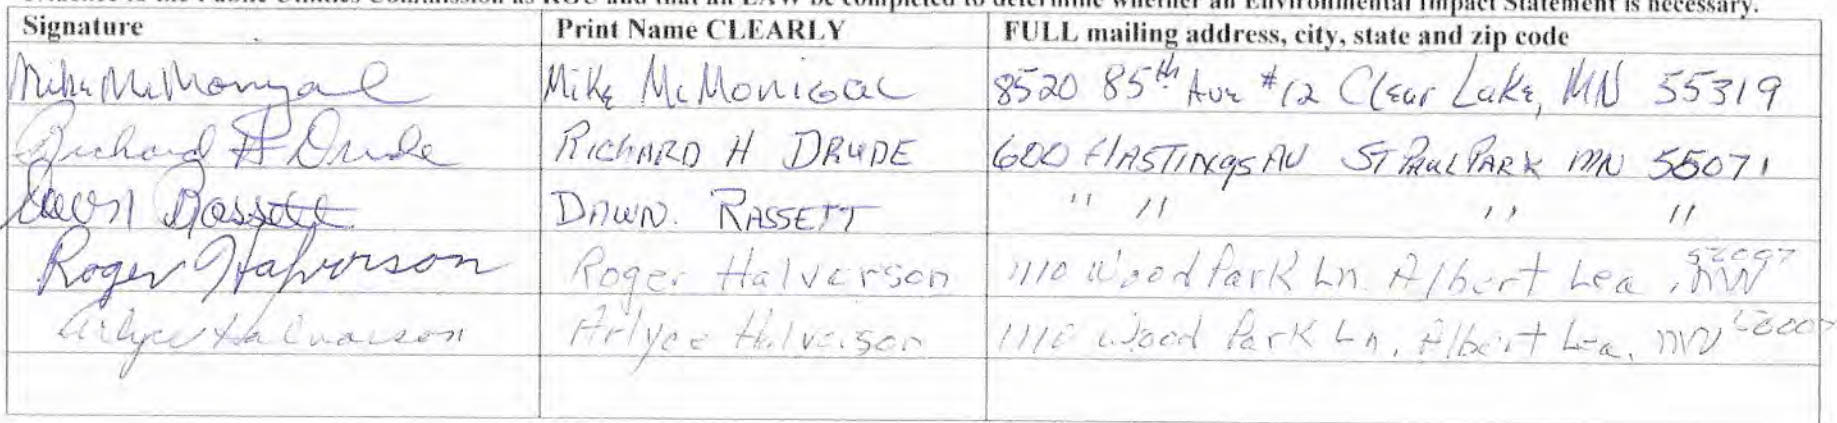 evidence to the Public Utilities Commission as RGU and that an EAW be completed to determine whether an Environmental Impact Statement is necessary.
Signature Print Name CLEARLY FULL mailing address, city, state and zip code
Mike McMonigal Mike McMonigal 8520 85th Ave #12 Clear Lake, MN 55319
Richard H Drude RICHARD H DRUDE 600 HASTINGS AV ST PAUL PARK MN 55071
Dawn Rassett DAWN. RASSETT " " " "
Roger Halverson Roger Halverson 1110 Wood Park Ln. Albert Lea, MN 56007
Arlyce Halverson Arlyce Halverson 1110 Wood Park Ln, Albert Lea, MN 56007